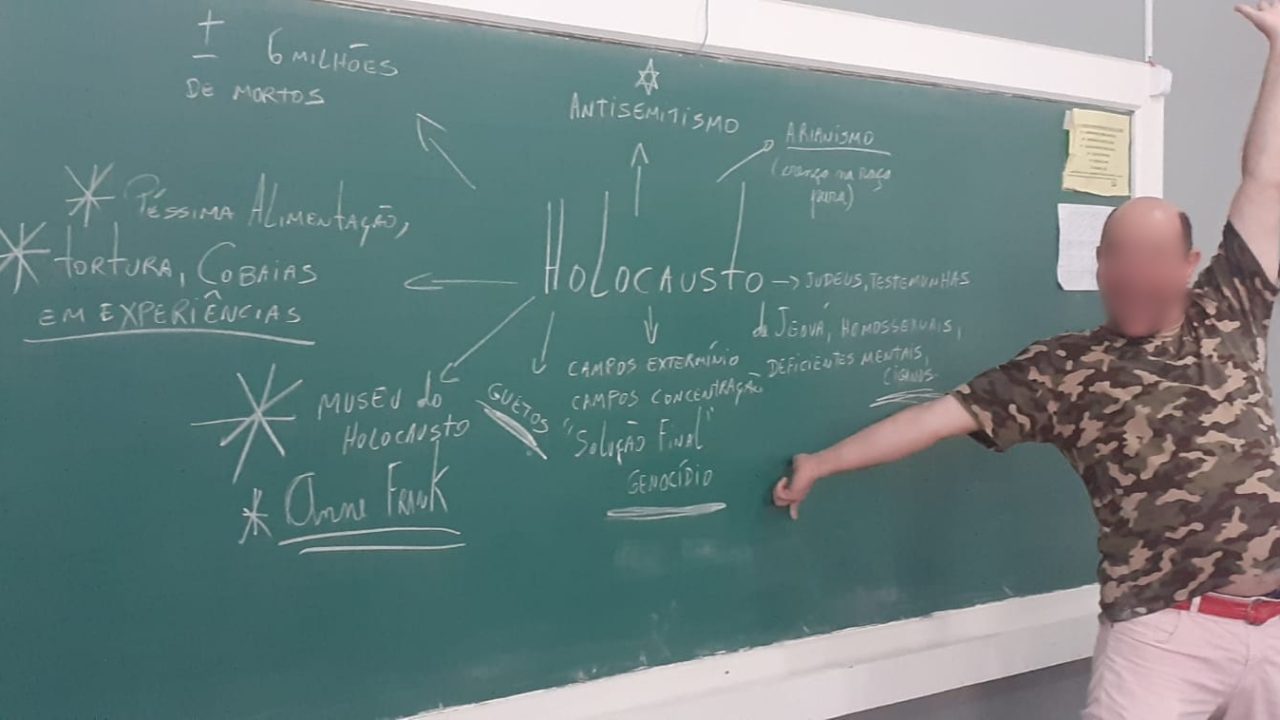 +
- 6 MILHÕES
DE MORTOS
ANTISEMITISMO
ARIANISMO
(crença na raça
pura)
PÉSSIMA ALIMENTAÇÃO,
TORTURA, COBAIAS
EM EXPERIÊNCIAS
HOLOCAUSTO
JUDEUS, TESTEMUNHAS
de JEOVÁ, HOMOSSEXUAIS,
DEFICIENTES MENTAIS,
CIGANOS.
MUSEU do
HOLOCAUSTO
Anne FRANK
GUETOS
CAMPOS EXTERMÍNIO
CAMPOS CONCENTRAÇÃO
"Solução Final"
GENOCÍDIO